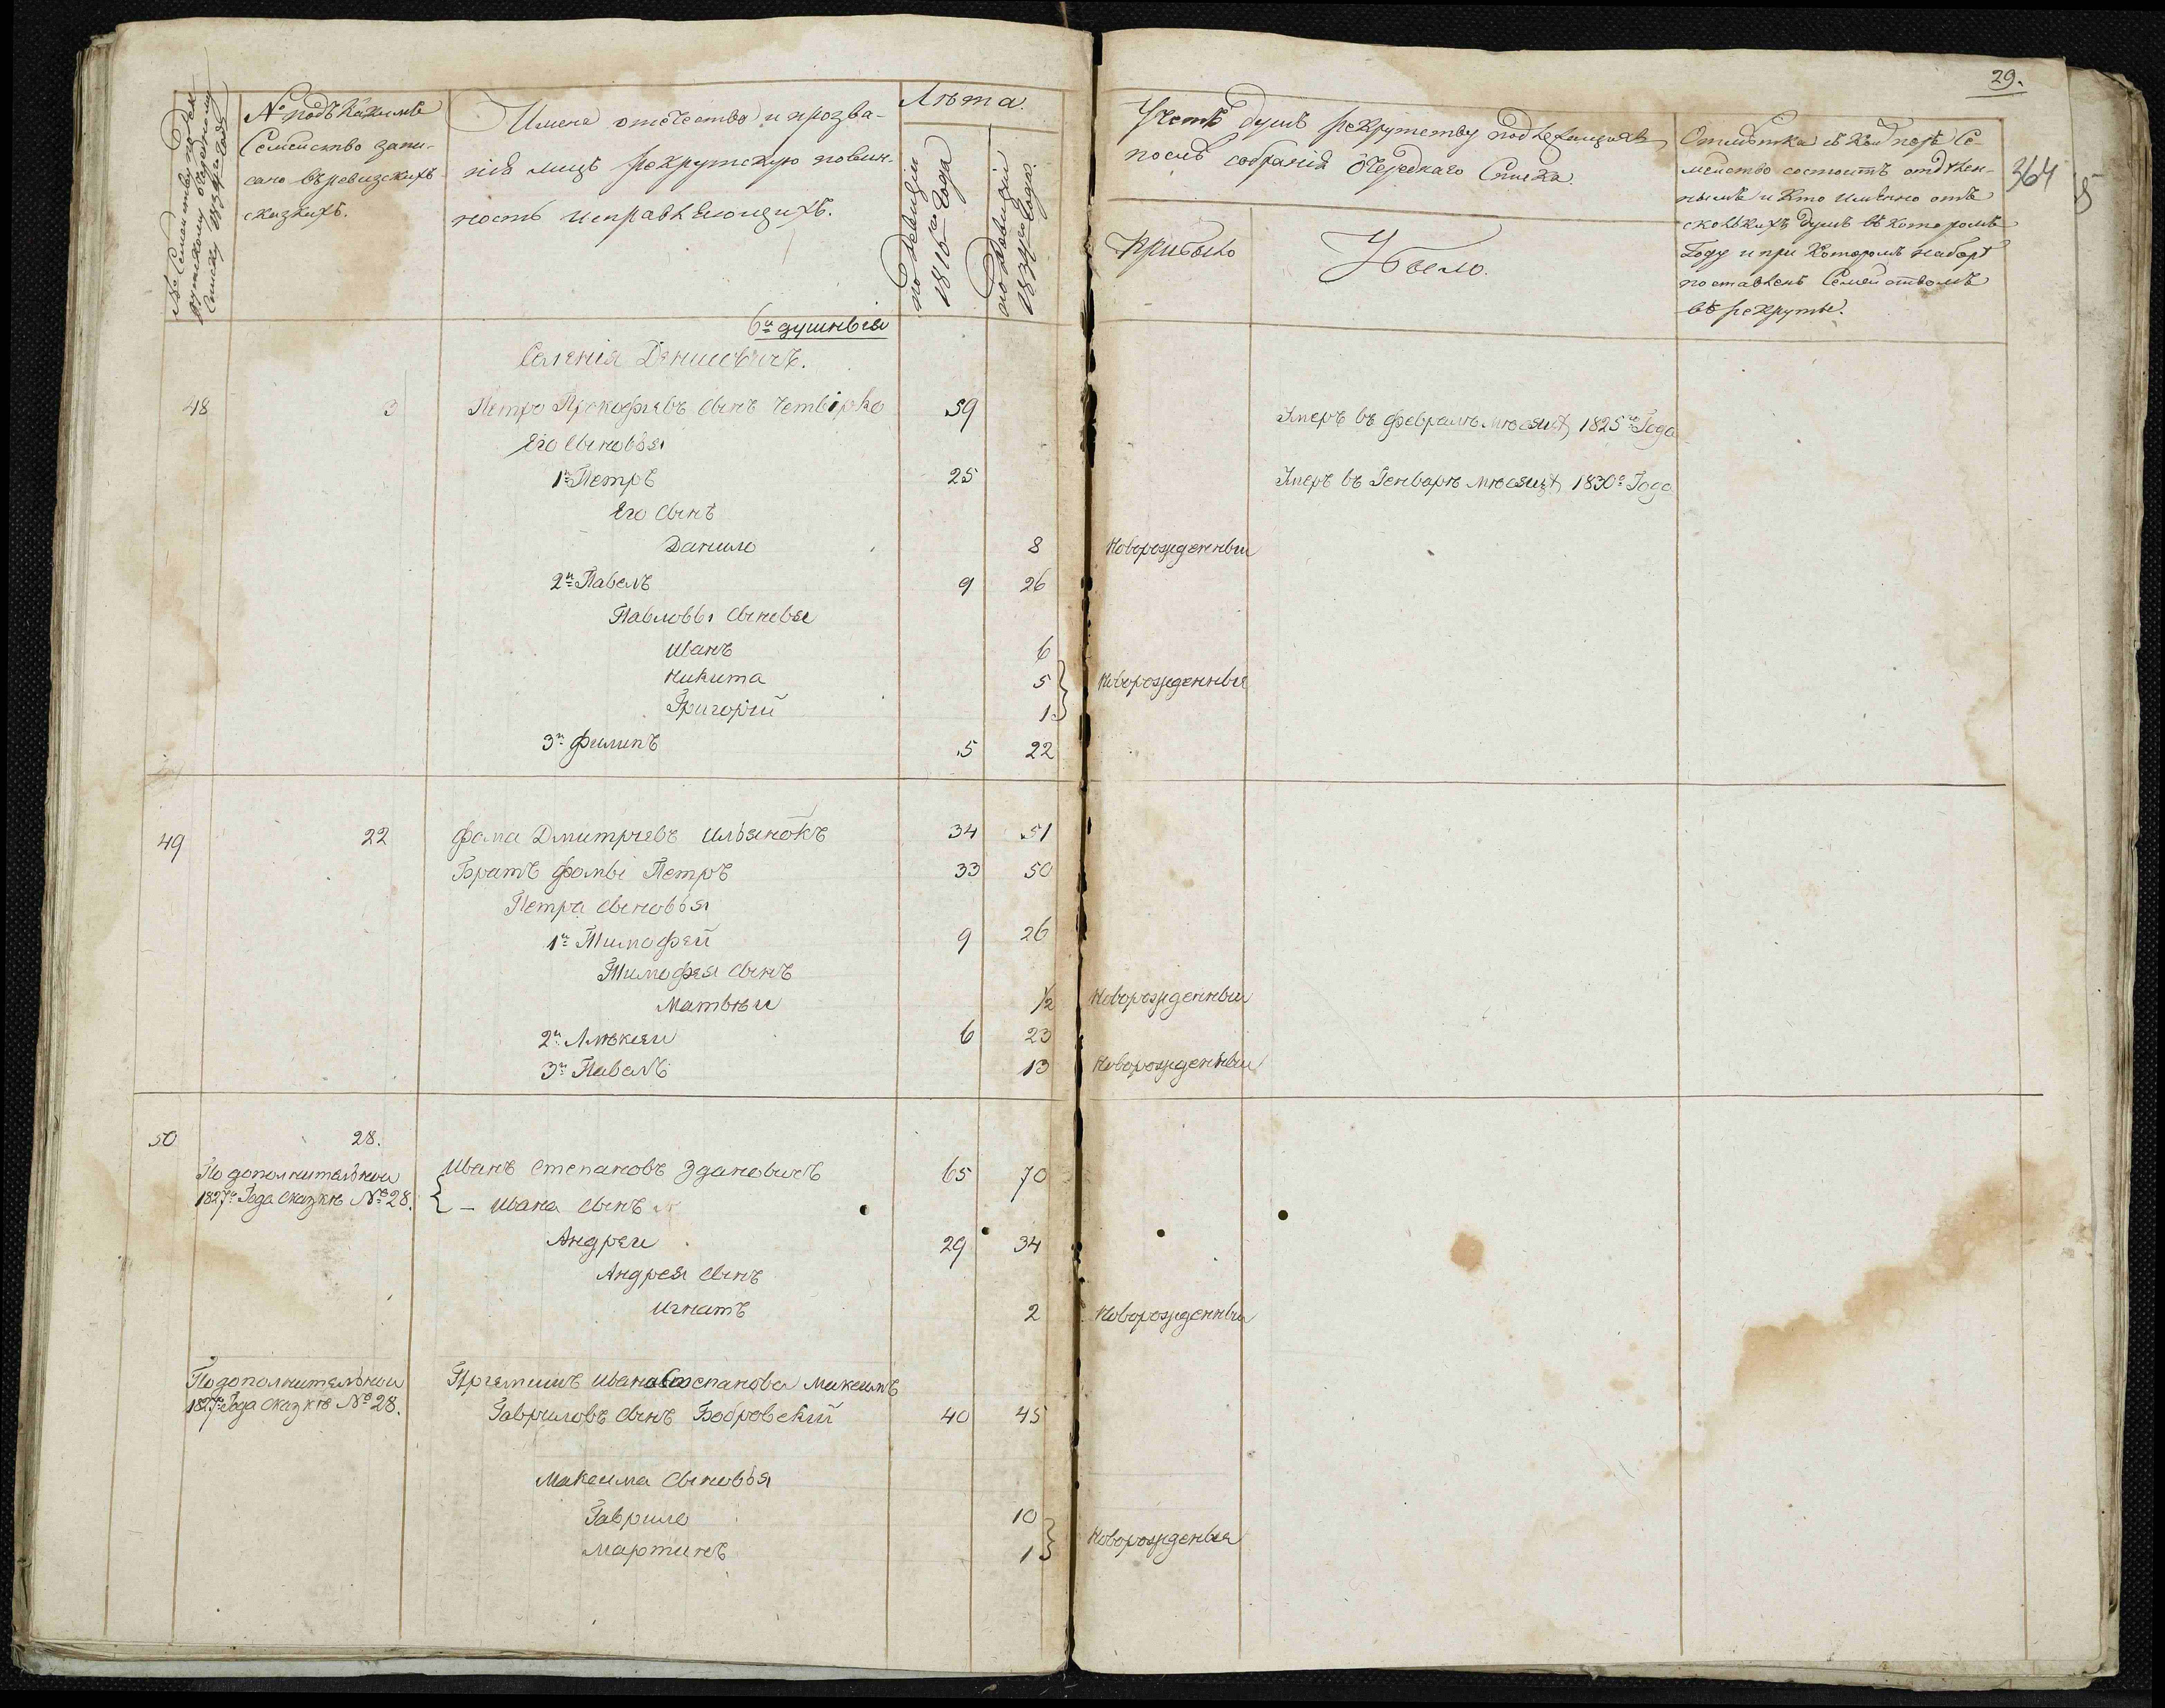 29.
364
№ Семейству по рек-
рутскому очередному
списку 1834 года
№ подъ какимъ
Семейство запи-
сано въ ревизскихъ
сказкахъ.
Имена отечество и прозва-
нія лицъ рекрутскую повин-
ность исправляющихъ.
Лѣта.
по ревизіи
1816го года
по ревизіи
года
Учетъ душъ рекрутству подлежащихъ
послѣ собранія Очереднаго Списка.
Прибыло
Убыло.
Отмѣтка съ коихъ поръ Се-
мейство состоитъ отдѣлен-
нымъ и кто имѣнно отъ
сколькихъ душъ въ которомъ
Году и при которомъ наборѣ
поставленъ Семействомъ
въ рекруты.
6и душныія
Селенія Денисовичъ.
48 3 Петро Прокофіевъ сынъ Четвірко 59 Умеръ въ февралѣ мѣсяцѣ 1825го Года
Его сыновья
1й Петръ 25 Умеръ въ Генварѣ мѣсяцѣ 1830го Года
Его сынъ
Данило 8 Новорожденный
2й Павелъ 9 26
Павловы сыновья
Иванъ 6
Никита 5 Новорожденныя
Григорій 1
3й Филипъ 5 22
49 22 Фома Дмитріевъ Ильянокъ 34 51
Братъ Фомы Петръ 33 50
Петра сыновья
1й Тимофей 9 26
Тимофея сынъ
Матвѣи 1/2 Новорожденный
2й Алѣксѣи 6 23
3й Павелъ 13 Новорожденный
50 28.
По дополнительнои Иванъ Степановъ Здановичъ 65 70
1827го Года сказкѣ № 28. – Ивана сынъ
Андреи 29 34
Андрея сынъ
Игнатъ 2 Новорожденный
По дополнительнои Пріемишъ Ивана Степанова Максимъ
1827го Года сказкѣ № 28. Гавриловъ сынъ Бобровскій 40 45
Максима сыновья
Гаврило 10
Мартинъ 1 Новорожденыя